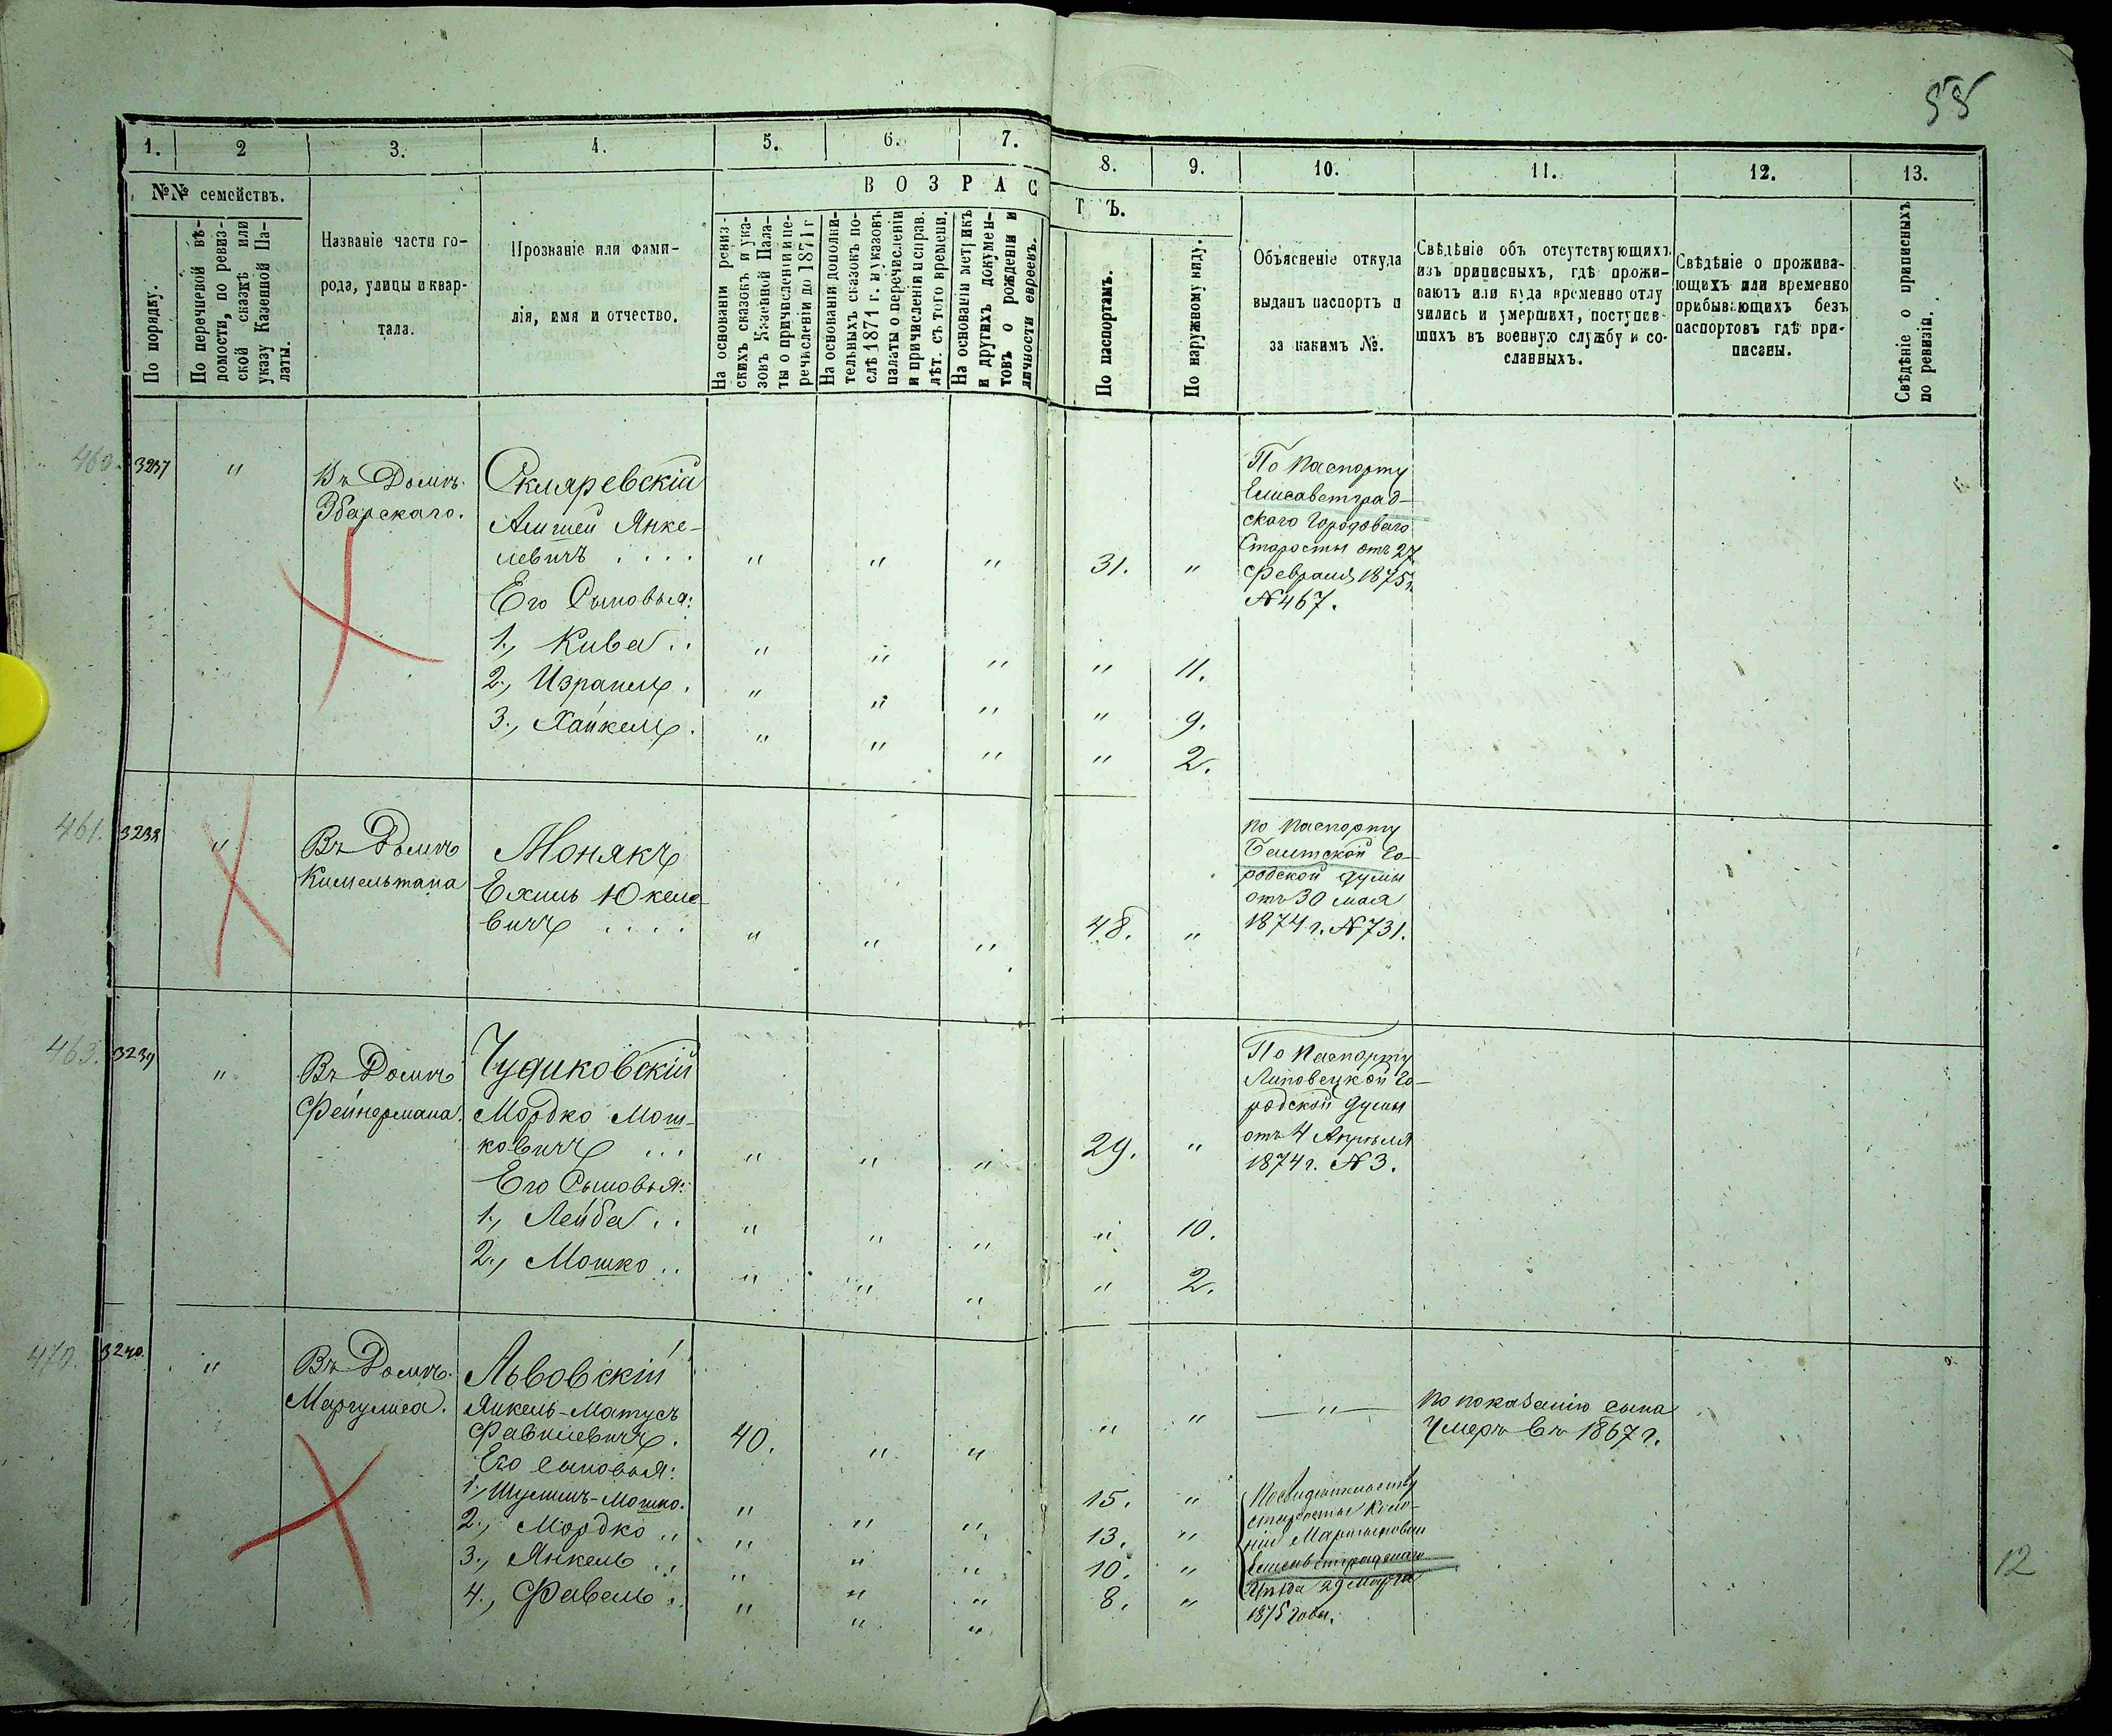 55
1.
2
3.
4.
5.
6.
7.
8.
9.
10.
11.
12.
13.
№№ семействъ.
ВОЗРАС
ТЪ.
По порядку.
По перечневой вѣ-
домости, по ревиз-
ской сказкѣ или
указу Казенной Па-
латы.
Названіе части го-
рода, улицы и квар-
тала.
Прозваніе или фами-
лія, имя и отчество.
На основаніи ревиз-
скихъ сказокъ и ука-
зовъ Казенной Пала-
ты о причисленіи и пе-
речисленіи до 1871 г
На основаніи дополни-
тельныхъ сказокъ по-
слѣ 1871 г. и указовъ
палаты о перечисленіи
и причисленія и справ.
лѣт. съ того времени.
На основаніи метрикъ
и другихъ докумен-
товъ о рожденіи и
личности евреевъ.
По паспортамъ.
По наружному виду.
Объясненіе откуда
выданъ паспортъ и
за какимъ №.
Свѣдѣніе объ отсутствующихъ
изъ приписныхъ, гдѣ прожи-
ваютъ или куда временно отлу
чились и умершихъ, поступив-
шихъ въ военную службу и со-
сланныхъ.
Свѣдѣніе о прожива-
ющихъ или временно
прибывающихъ безъ
паспортовъ гдѣ при-
писаны.
Свѣдѣніе о приписныхъ
по ревизіи.
460. 3237 " Въ Домѣ
Збарскаго.
Скляревскій
Янке-
левичъ . . . . " " " 31. "
Его Сыновья:
1., Кива . . " " " " 11.
2., Израиль . " " " " 9.
3., Хайкель . " " " " 2.
По паспорту
Елисаветград-
скаго Городоваго
Старосты отъ 27
Февраля 1875 г.
№ 467.
461. 3238 " Въ Домѣ
Кисельмана
Монякъ
Ехиль Юкеле-
вичъ . . . . " " " 48. "
по паспорту
Балтской Го-
родской Думы
отъ 30 мая
1874 г. № 731.
463. 3239 " Въ Домѣ
Фейнермана.
Чудиковскій
Мордко Мош-
ковичъ . . . " " " 29. "
Его Сыновья:
1., Лейба . . " " " " 10.
2., Мошко . . " " " " 2.
По Паспорту
Липовецкой Го-
родской Думы
отъ 4 Апрѣля
1874 г. № 3.
470. 3240. " Въ Домѣ
Маргулиса.
Львовскій
Янкель-Матусъ
Фавилевичъ. 40. " " " " — " —
Его сыновья:
1., Шулимъ-Мошко. " " " 15. "
2., Мордко . . " " " 13. "
3., Янкель . . " " " 10. "
4., Фавель . . " " " 8. "
по показанію сына
Умеръ въ 1867 г.
старосты Коло-
ніи
Елисаветградскаго
Уѣзда 29 Марта
1875 года.
12